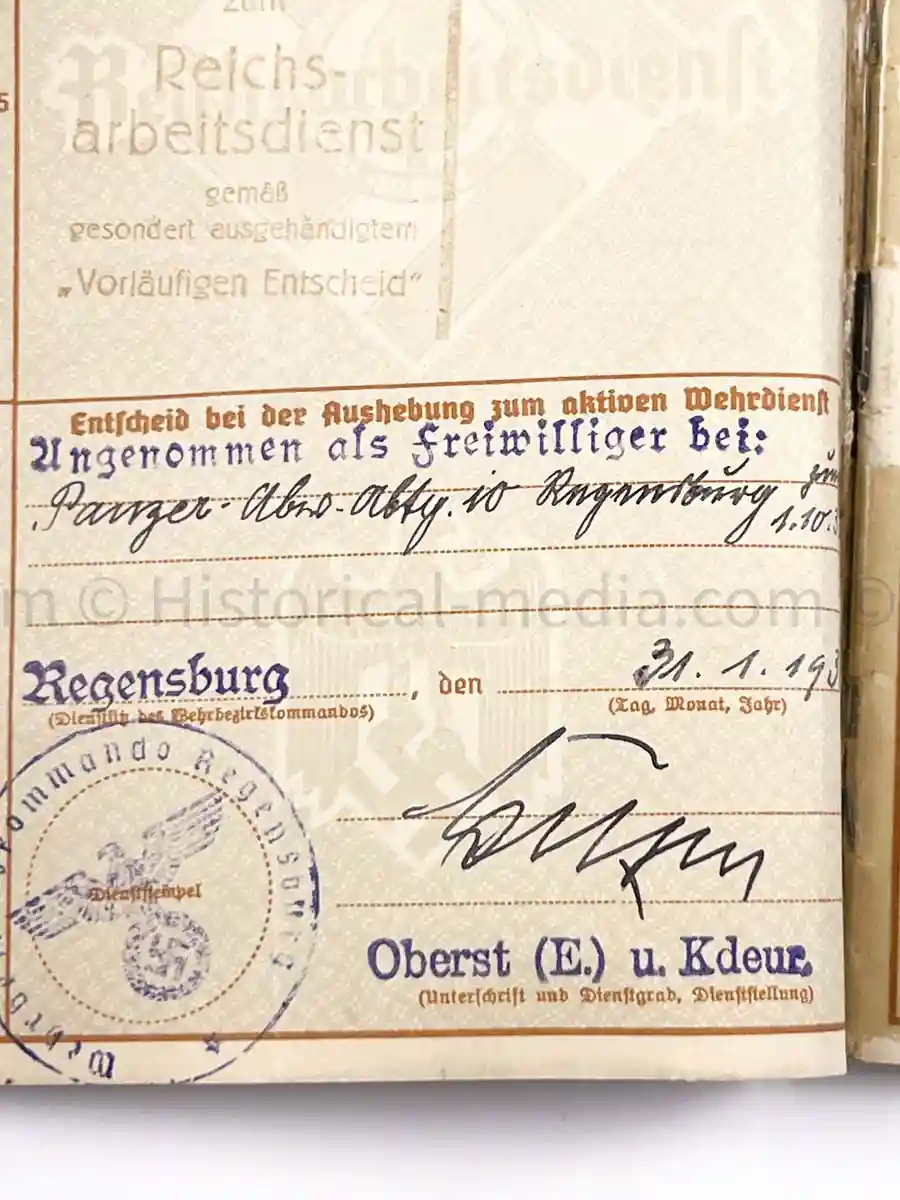 zum
Reichs-
arbeitsdienst
Reichsarbeitsdienst
gemäß
gesondert ausgehändigtem
„Vorläufigen Entscheid“
5
Entscheid bei der Aushebung zum aktiven Wehrdienst
Angenommen als Freiwilliger bei:
Panzer-Abw.-Abtg. 10 Regensburg zum
1.10.3
m © Historical-media.com ©
Regensburg, den 31. 1. 193
(Dienstsitz des Wehrbezirkskommandos) (Tag, Monat, Jahr)
kommando Regensburg
Dienststempel
Oberst (E.) u. Kdeur.
(Unterschrift und Dienstgrad, Dienststellung)